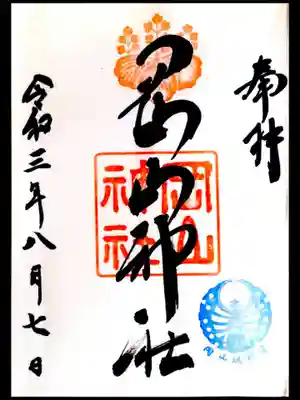 奉拝
岡山神社
岡山神社
令和三年八月七日